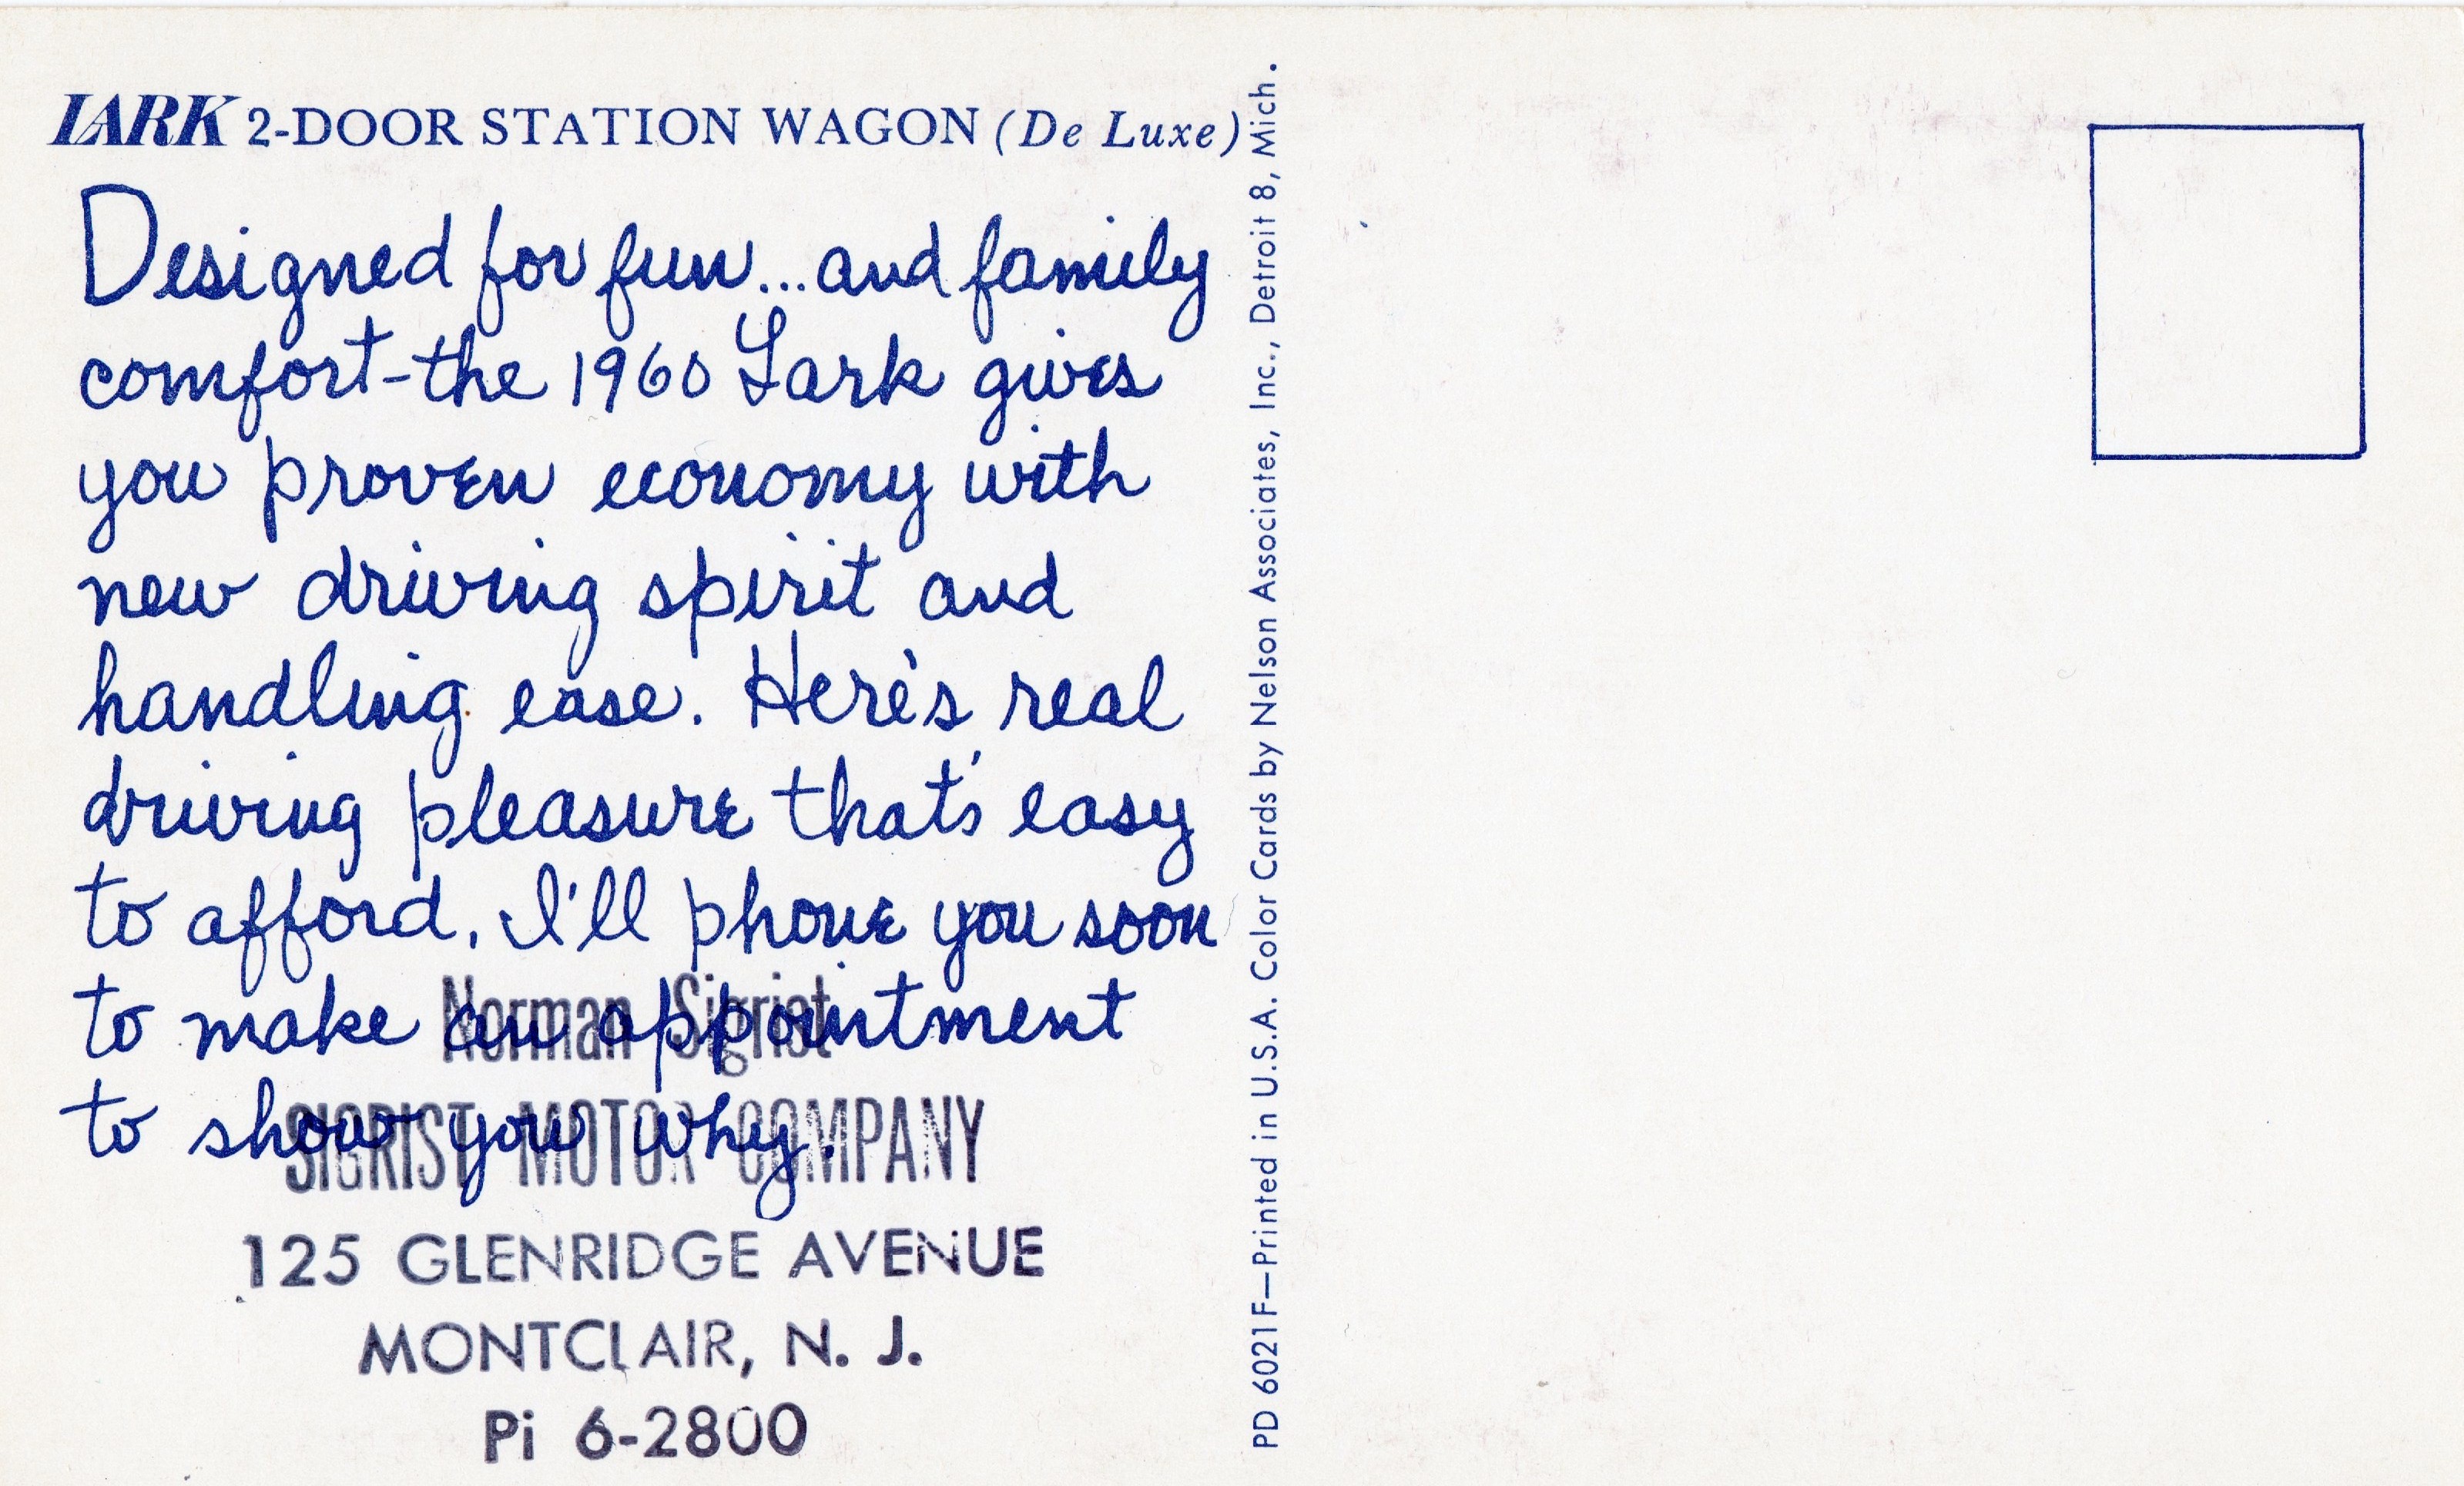 LARK 2-DOOR STATION WAGON (De Luxe)
Designed for fun...and family
comfort-the 1960 Lark gives
you proven economy with
new driving spirit and
handling ease. Here's real
driving pleasure that's easy
to afford. I'll phone you soon
to make an appointment
to show you why.
Norman Sigrist
SIGRIST MOTOR COMPANY
125 GLENRIDGE AVENUE
MONTCLAIR, N. J.
Pi 6-2800
PD 6021F—Printed in U.S.A. Color Cards by Nelson Associates, Inc., Detroit 8, Mich.